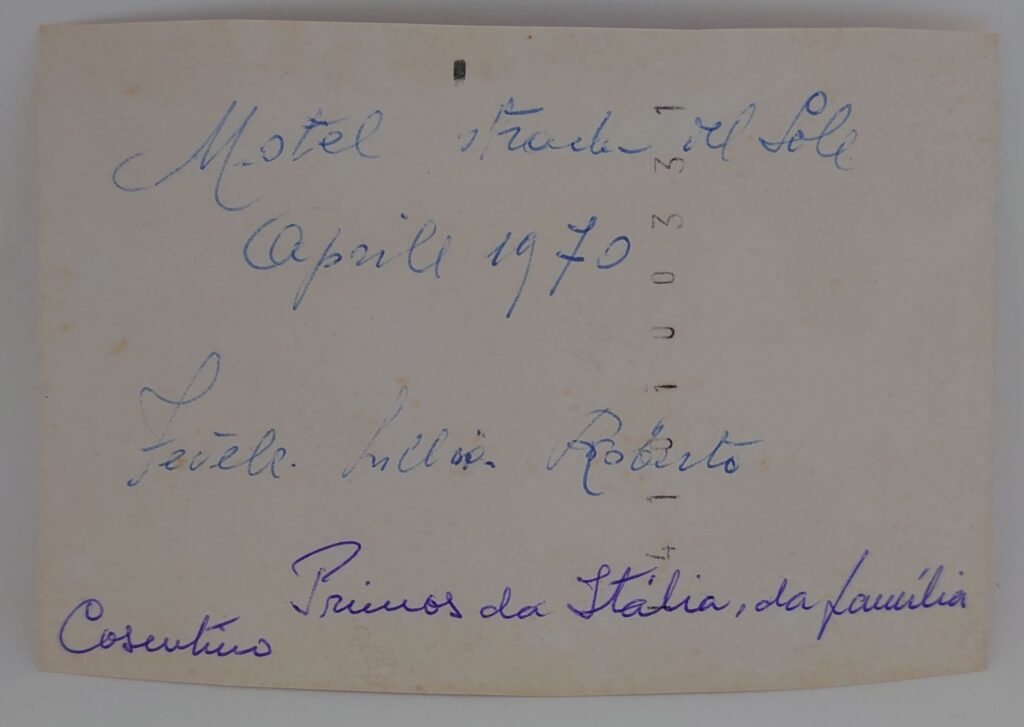 Motel strada del Sole
Aprile 1970
Fedele. Lillina Roberto
Primos da Itália, da família
Cosentino
4 1 0 1 0 0 3 3 1